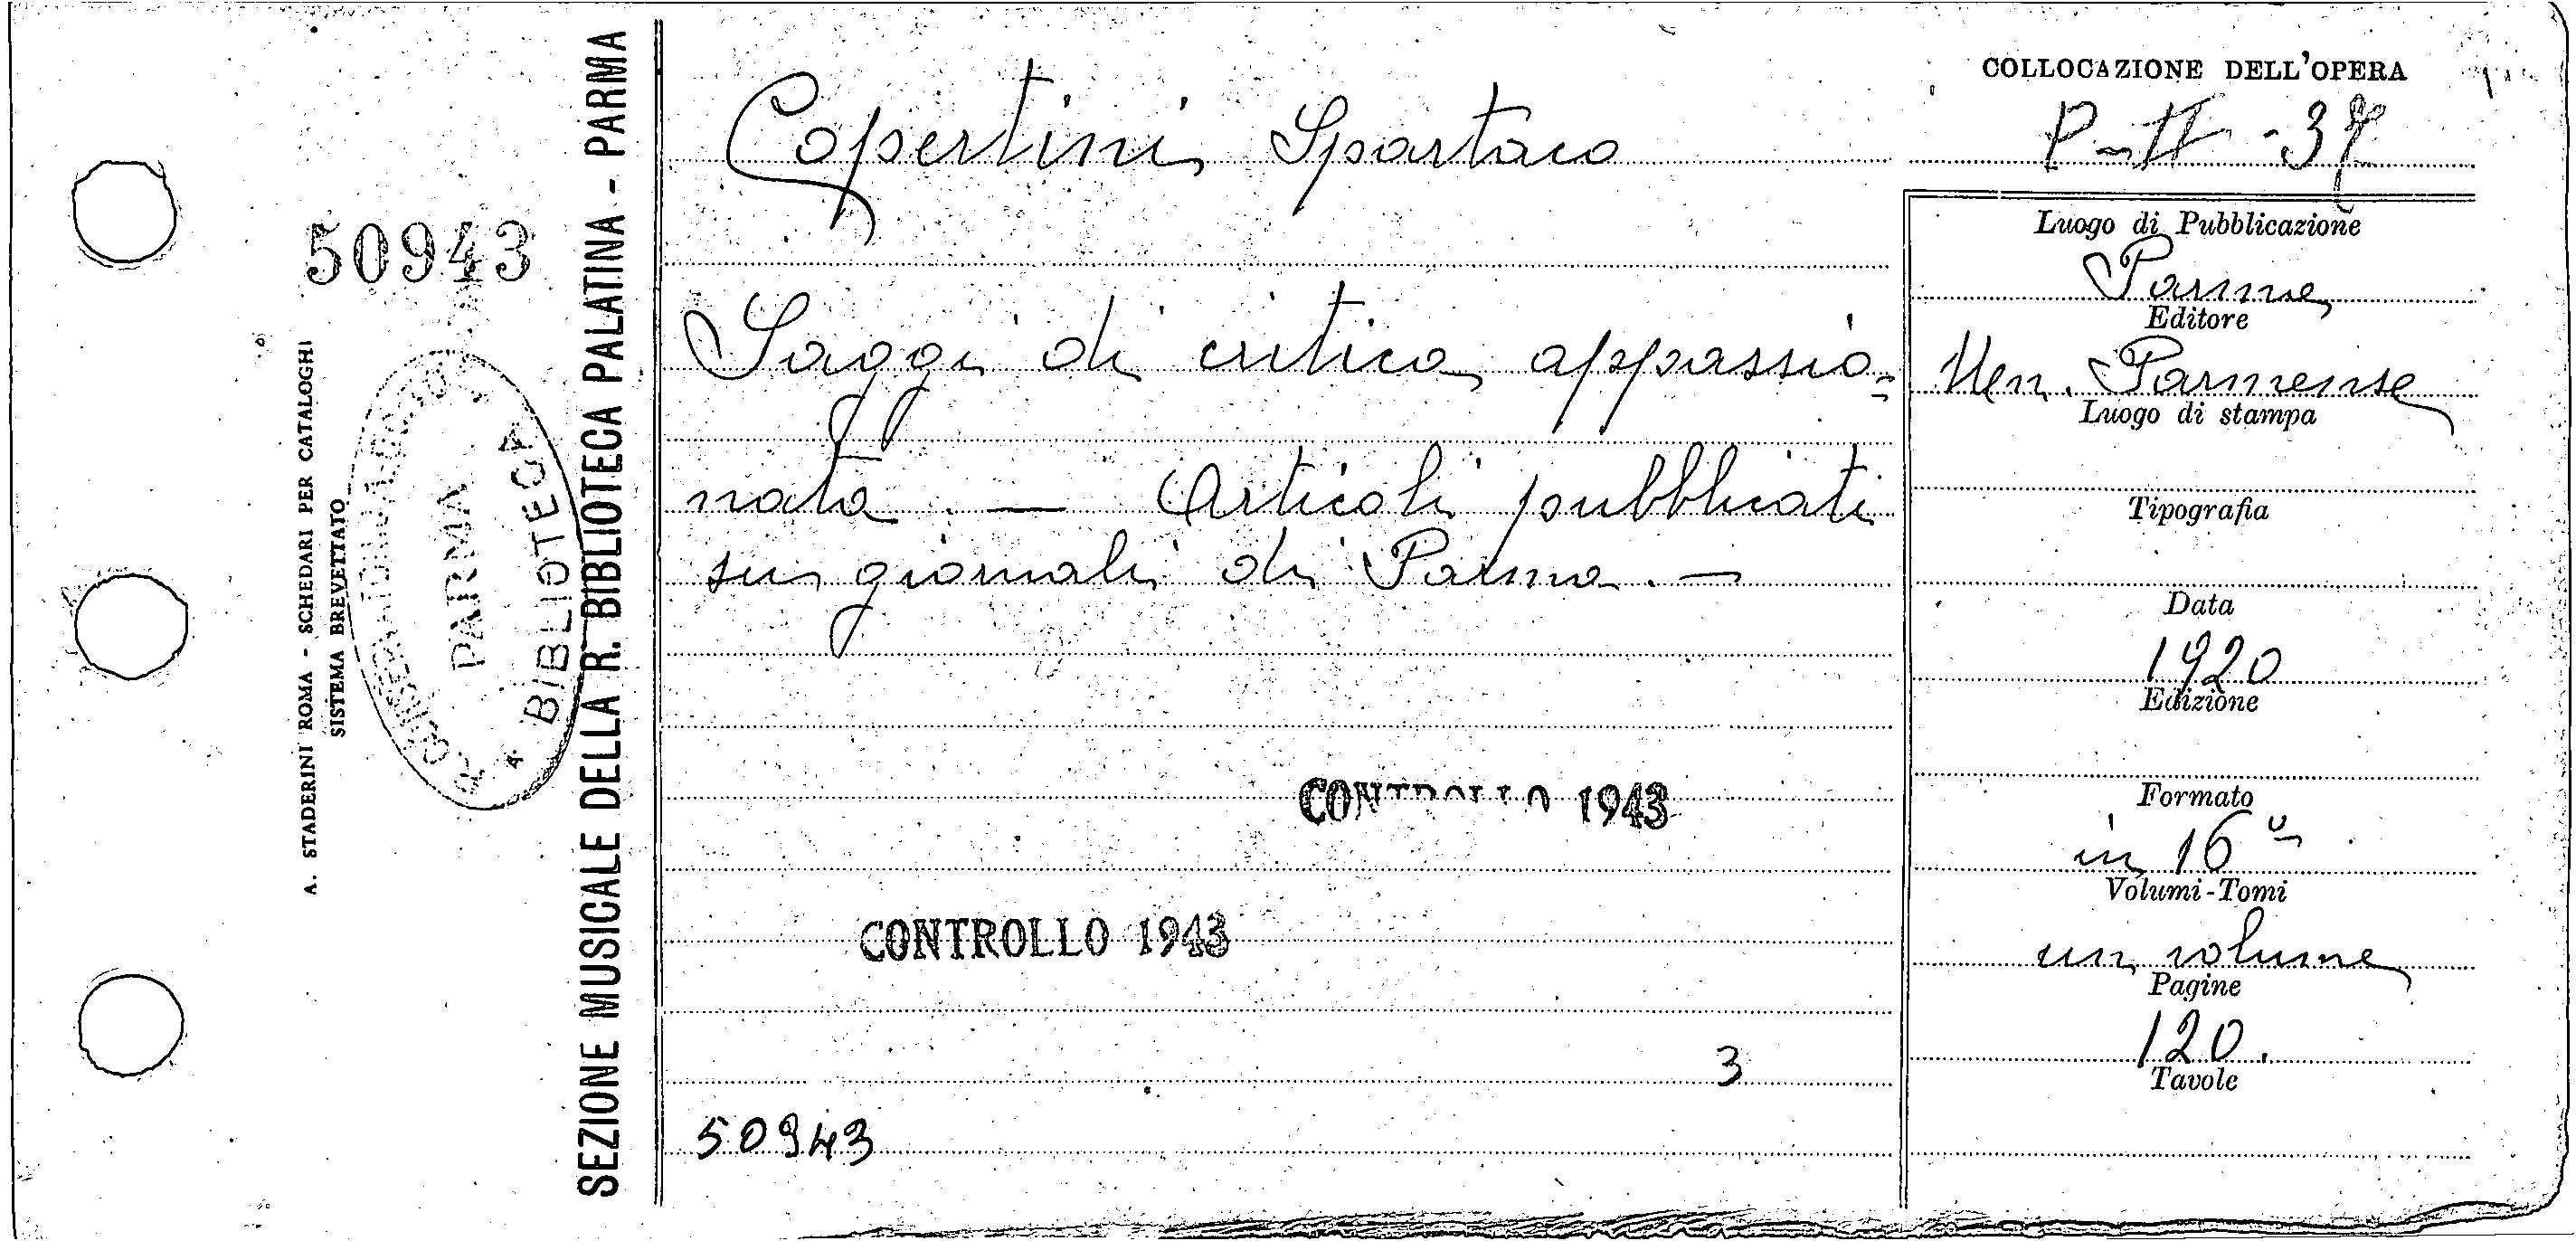 50943
A. STADERINI ROMA - SCHEDARI PER CATALOGHI
SISTEMA BREVETTATO
PARMA
* BIBLIOTECA
SEZIONE MUSICALE DELLA R. BIBLIOTECA PALATINA - PARMA
Copertini Spartaco
Saggi di critica appassio=
nata. — Articoli pubblicati
su giornali di Parma. —
CONTROLLO 1943
CONTROLLO 1943
3
50943
COLLOCAZIONE DELL'OPERA
Luogo di Pubblicazione
Parma
Editore
Parmense
Luogo di stampa
Tipografia
Data
1920
Edizione
Formato
in 16º
Volumi-Tomi
un volume
Pagine
120.
Tavole